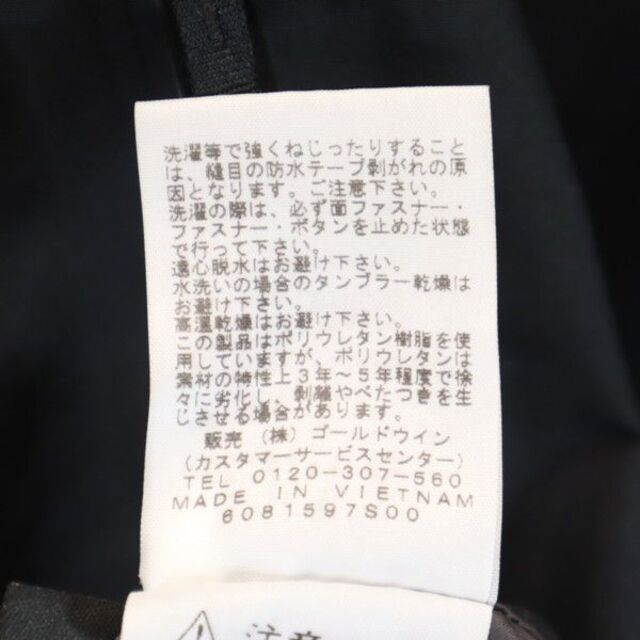 洗濯等で強くねじったりすること
は、縫目の防水テープ剝がれの原
因となります。ご注意下さい。
洗濯の際は、必ず面ファスナー・
ファスナー・ボタンを止めた状態
で行って下さい。
遠心脱水はお避け下さい。
水洗いの場合のタンブラー乾燥は
お避け下さい。
高温乾燥はお避け下さい。
この製品はポリウレタン樹脂を使
用していますが、ポリウレタンは
素材の特性上3年～5年程度で徐
々に劣化し、剝離やべたつきを生
じさせる場合があります。
販売 (株) ゴールドウイン
(カスタマーサービスセンター)
TEL 0120-307-560
MADE IN VIETNAM
6081597S00
注意